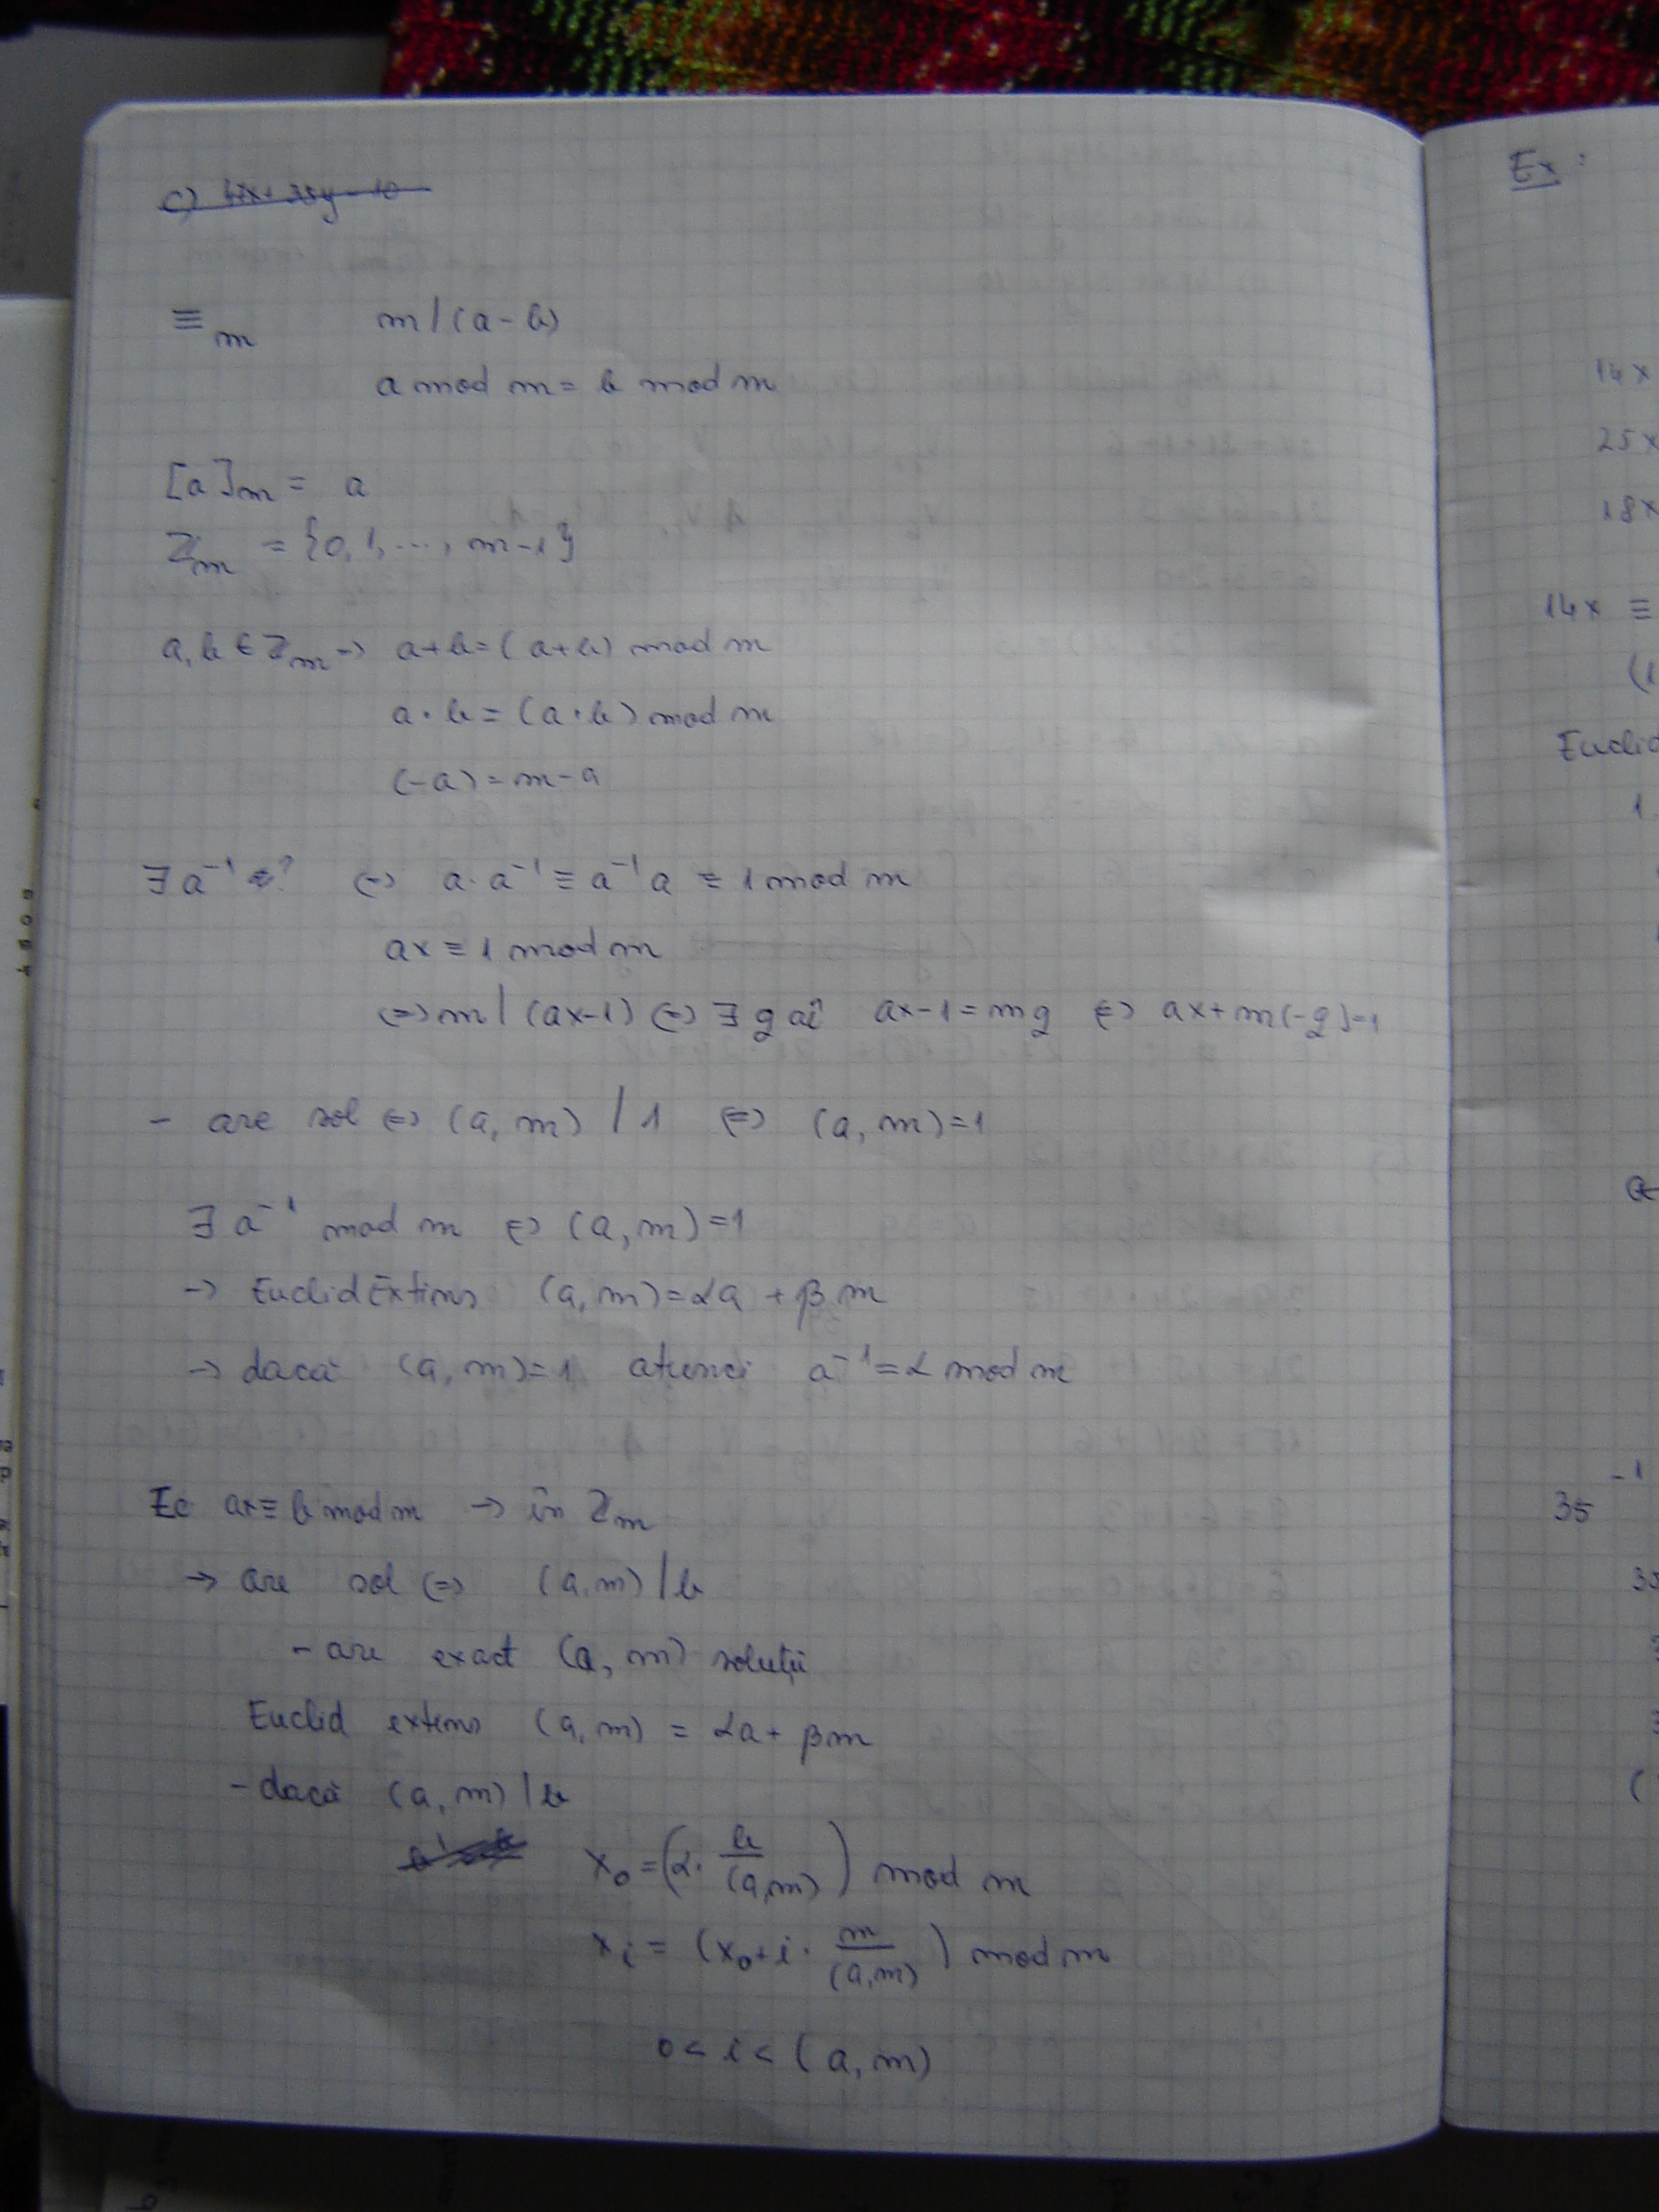 c)
≡m m | (a-b)
a mod m = b mod m
[a]m = a
ℤm = {0, 1, ..., m-1}
a, b ∈ ℤm → a+b = (a+b) mod m
a · b = (a · b) mod m
(-a) = m-a
∃ a⁻¹ ? ⇔ a · a⁻¹ ≡ a⁻¹ a ≡ 1 mod m
ax ≡ 1 mod m
⇔ m | (ax-1) ⇔ ∃ q aî ax-1 = mq ⇔ ax+m(-q)=1
- are sol ⇔ (a, m) | 1 ⇔ (a, m)=1
∃ a⁻¹ mod m ⇔ (a, m)=1
→ Euclid Extins (a, m) = αa + βm
→ dacă (a, m)=1 atunci a⁻¹ = α mod m
Ec ax ≡ b mod m → în ℤm
→ are sol ⇔ (a, m) | b
- are exact (a, m) soluții
Euclid extins (a, m) = αa + βm
- dacă (a, m) | b
x₀ = (α · b/(a,m)) mod m
xᵢ = (x₀ + i · m/(a,m)) mod m
0 < i < (a, m)
Ex:
14x
25x
18x
14x ≡
(1
Euclid
1
35⁻¹
35
(